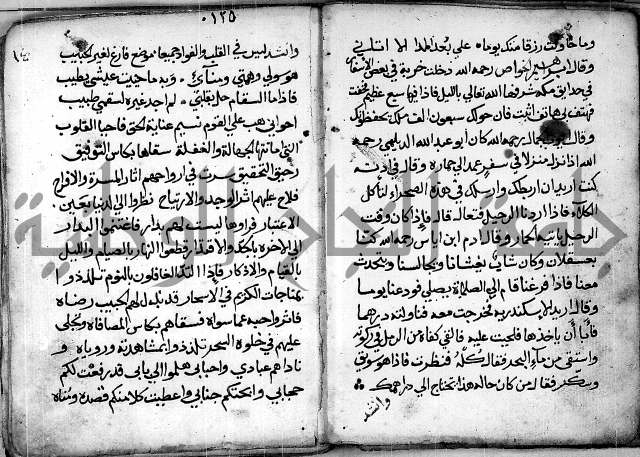 وما حاولت رزقا منك يوما ٭ علي بعد المدا الا اتاني
وقال ابراهيم الخواص رحمه الله دخلت خربة في بعض الاسفار
في طريق مكة شرفها الله تعالي بالليل فاذا فيها سبع عظيم فخفت
فهتف بي هاتف اثبت فان حولك سبعون الف ملك يحفظونك
وقال رحمه الله كان أبو عبد الله الديلمي رحمه
الله اذا نزل منزلا في سفر عمد الي حماره وقال في اذنه
كنت اريد ان اربطك وارسلك في هذه الصحراء لتاكل
الكلاء فاذا اردنا الرحيل فتعال قال فاذا كان وقت
الرحيل ياتيه الحمار وقال ادم ابن اياس رحمه الله كنا
بعسقلان وكان شاب يغشانا ويجالسنا ويتحدث
معنا فاذا فرغنا قام الي الصلاة يصلي فودعنا يوما
وقال اريد الاسكندرية فخرجت معه فناولته درهما
فأبا أن ياخذها فلححت عليه فالقي كفا من الرمل في ركوته
واستقي من ماء البحر فقال كله فنظرت فاذا هو سويق
وسكر فقال من كان حاله هذا ايحتاج الي دراهمك
وانشد
٠١٣٥
وانشد ليس في القلب والفواد جميعا موضع فارغ لغير الحبيب
هو سولي وهمتي ومنائي ٭ وبه ما حييت عيشي يطيب
فاذا ما السقام حل بقلبي ٭ لم اجد غيره لسقمي طبيب
اخواني هب علي القوم نسيم عناية الحق فاحيا القلوب
التي اماتتها الجهالة والغفلة سقاها بكاس التوفيق
رحيق التحقيق سرت في ارواحهم اثار المسرة والافراح
فلاح عليهم اثر الوجد والارتياح نظروا الي الدنيا بعين
الاعتبار فراوها ليست لهم بدار فاغتنموا البدار
الي الاخرة بالجد والاقتدا قطعوا النهار بالصيام والليل
بالقيام والاذكار فاذا التذ الغافلون بالنوم تلذذوا
بمناجات الكريم في الاسحار قد بذلهم الحبيب رضاه
فاثروا حبه عما سواه فسقاهم بكاس المصافاه وتجلي
عليهم في خلوة السحر تلذذوا بمشاهدته وروياه و
ناداهم عبادي واحبابي هلموا الي بابي قد رفعت لكم
حجابي وابحتكم جنابي واعطيت كلا منكم قصده ومناه
جامعة النجاح الوطنية